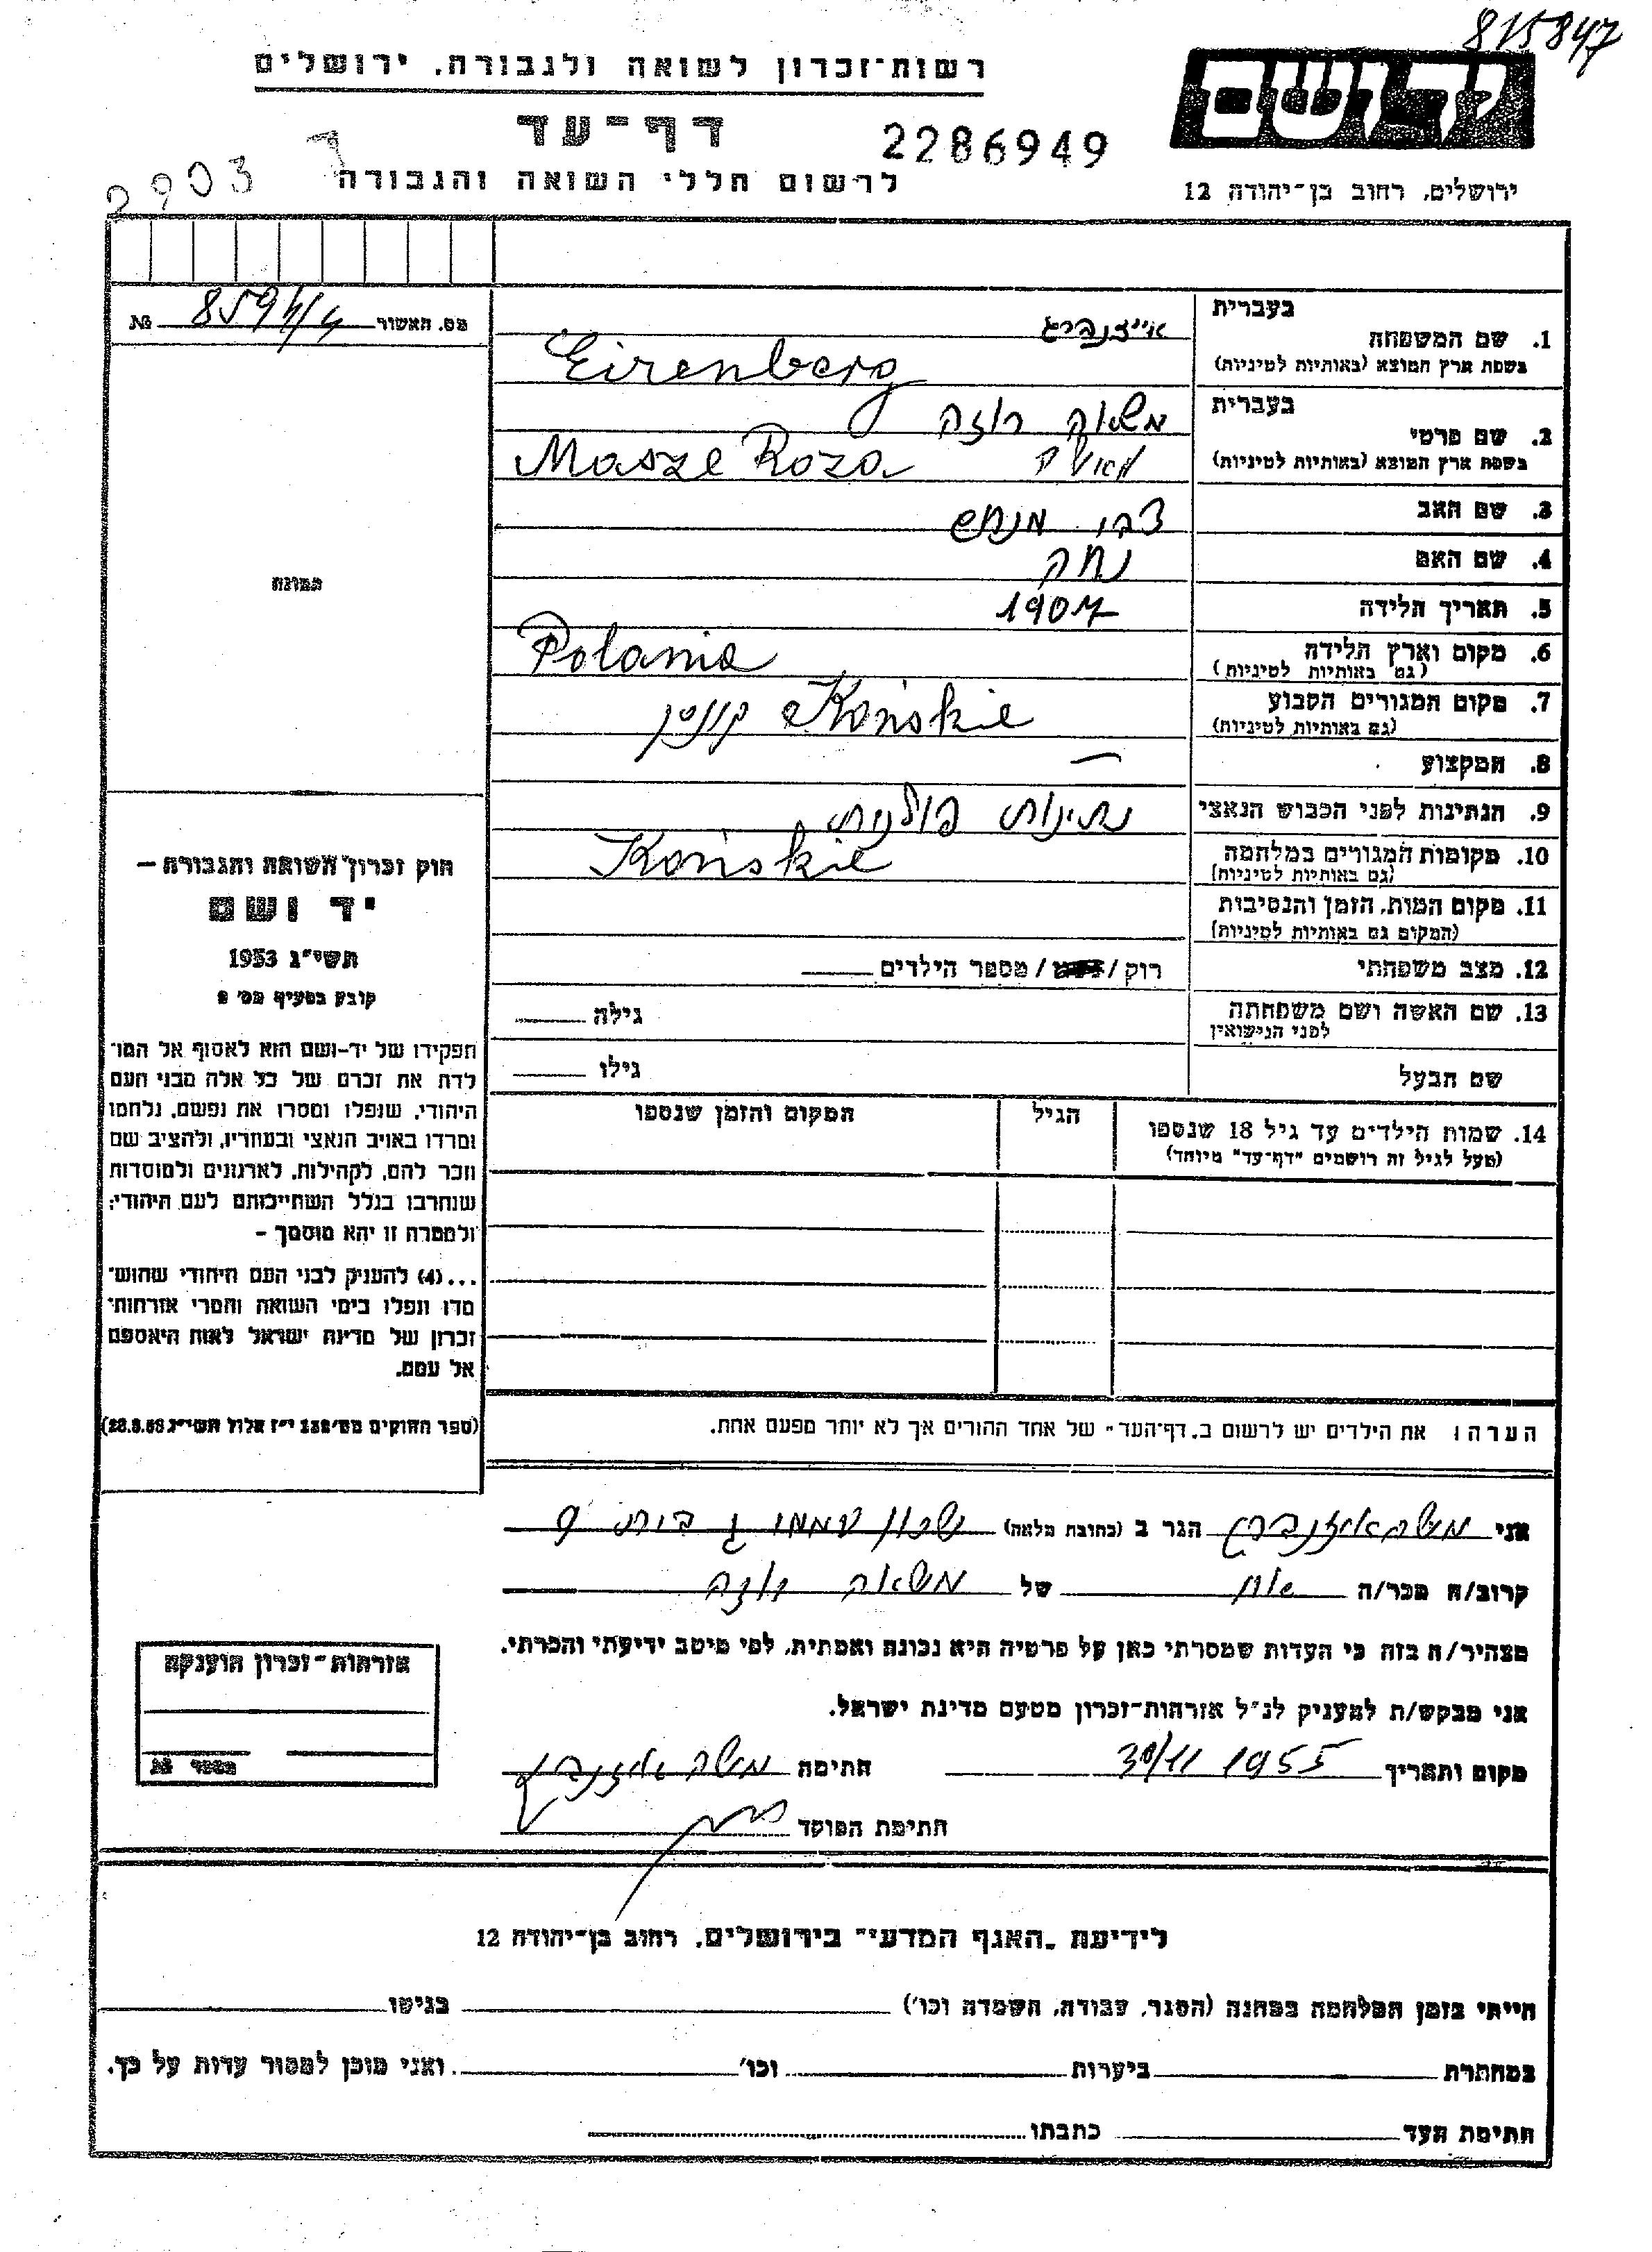 815847
רשות־זכרון לשואה ולגבורה, ירושלים
יד ושם
דף־עד
2286949
2903
לרשום חללי השואה והגבורה
ירושלים, רחוב בן־יהודה 12
מס. האשור № 8594/4
בעברית
1. שם המשפחה אייזנברג
בשפת ארץ המוצא (באותיות לטיניות) Eizenberg
בעברית
2. שם פרטי משה רוזה
בשפת ארץ המוצא (באותיות לטיניות) Masze Roza
3. שם האב צבי מנחם
4. שם האם נחה
5. תאריך הלידה 1907
6. מקום וארץ הלידה Polania
(גם באותיות לטיניות)
7. מקום המגורים הקבוע Końskie קונסק
(גם באותיות לטיניות)
8. המקצוע —
9. הנתינות לפני הכבוש הנאצי נתינות פולנית
10. מקומות המגורים במלחמה Końskie
(גם באותיות לטיניות)
11. מקום המות, הזמן והנסיבות
(המקום גם באותיות לטיניות)
12. מצב משפחתי רוק / / מספר הילדים
13. שם האשה ושם משפחתה גילה
לפני הנישואין
שם הבעל גילו
14. שמות הילדים עד גיל 18 שנספו
(מעל לגיל זה רושמים "דף־עד" מיוחד)
הגיל
המקום והזמן שנספו
תמונה
חוק זכרון השואה והגבורה –
יד ושם
תשי"ג 1953
קובע בסעיף מס' 2
תפקידו של יד-ושם הוא לאסוף אל המו־
לדת את זכרם של כל אלה מבני העם
היהודי, שנפלו ומסרו את נפשם, נלחמו
ומרדו באויב הנאצי ובעוזריו, ולהציב שם
וזכר להם, לקהילות, לארגונים ולמוסדות
שנחרבו בגלל השתייכותם לעם היהודי;
ולמטרה זו יהא מוסמך –
...(4) להעניק לבני העם היהודי שהוש־
מדו ונפלו בימי השואה והמרי אזרחות־
זכרון של מדינת ישראל לאות היאספם
אל עמם.
(ספר החוקים מס' 132 י"ז אלול תשי"ג 28.8.53)
הערה: את הילדים יש לרשום ב"דף־העד" של אחד ההורים אך לא יותר מפעם אחת.
אני משה אייזנברג הגר ב (כתובת מלאה) שכון עממי ג בית 9
קרוב/ה מכר/ה אח של משה רוזה
מצהיר/ה בזה כי העדות שמסרתי כאן על פרטיה היא נכונה ואמתית, לפי מיטב ידיעתי והכרתי.
אני מבקש/ת להעניק לנ"ל אזרחות־זכרון מטעם מדינת ישראל.
מקום ותאריך 30/11 1955 חתימה משה אייזנברג
חתימת הפוקד
אזרחות־זכרון הוענקה
מספר №
לידיעת "האגף המדעי" בירושלים, רחוב בן־יהודה 12
הייתי בזמן המלחמה במחנה (הסגר, עבודה, השמדה וכו') בגיטו
במחתרת ביערות וכו' ואני מוכן למסור עדות על כך.
חתימת העד כתבתו